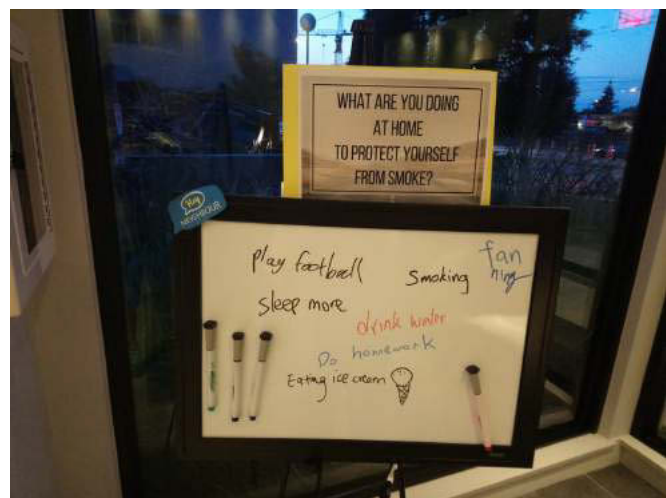 WHAT ARE YOU DOING
AT HOME
TO PROTECT YOURSELF
FROM SMOKE?
Hey
NEIGHBOUR
play football
Smoking
fan
ning
sleep more
drink water
Do homework
Eating ice cream